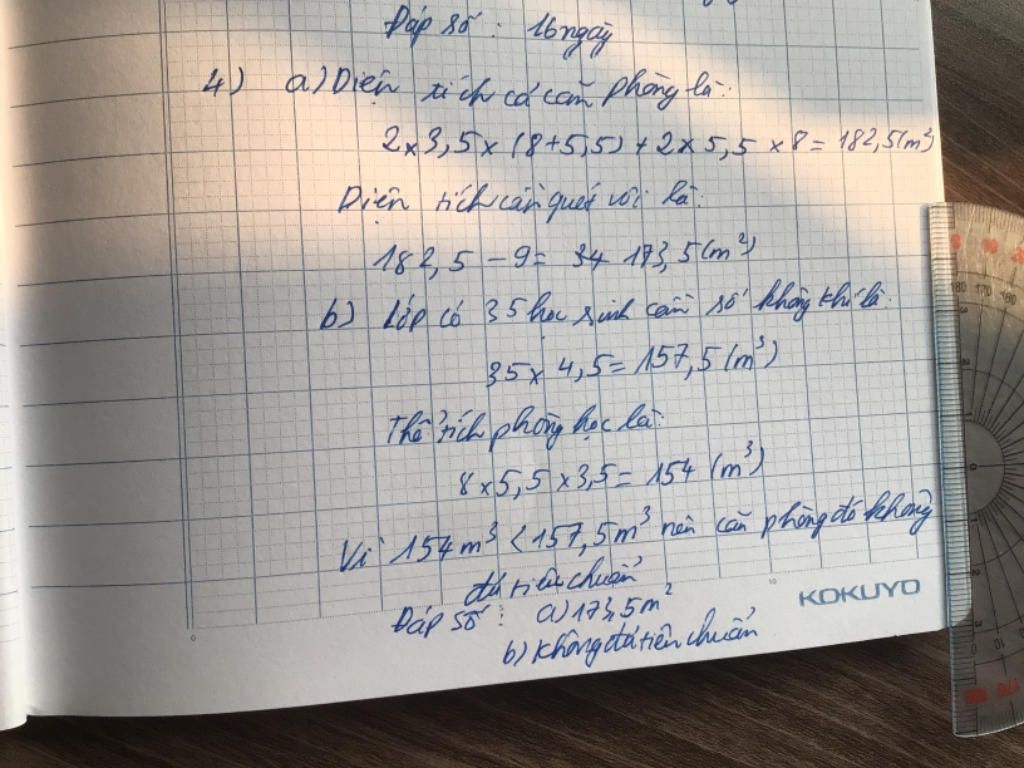 Đáp số : 16 ngày
4) a) Diện tích cả căn phòng là:
2 x 3,5 x (8 + 5,5) + 2 x 5,5 x 8 = 182,5 (m²)
Diện tích cần quét vôi là:
182,5 - 9 = 173,5 (m²)
b) Lớp có 35 học sinh cần số không khí là:
35 x 4,5 = 157,5 (m³)
Thể tích phòng học là:
8 x 5,5 x 3,5 = 154 (m³)
Vì 154 m³ < 157,5 m³ nên căn phòng đó không
đủ tiêu chuẩn
Đáp số : a) 173,5 m²
b) Không đủ tiên chuẩn
KOKUYO
180 170 160
0
10